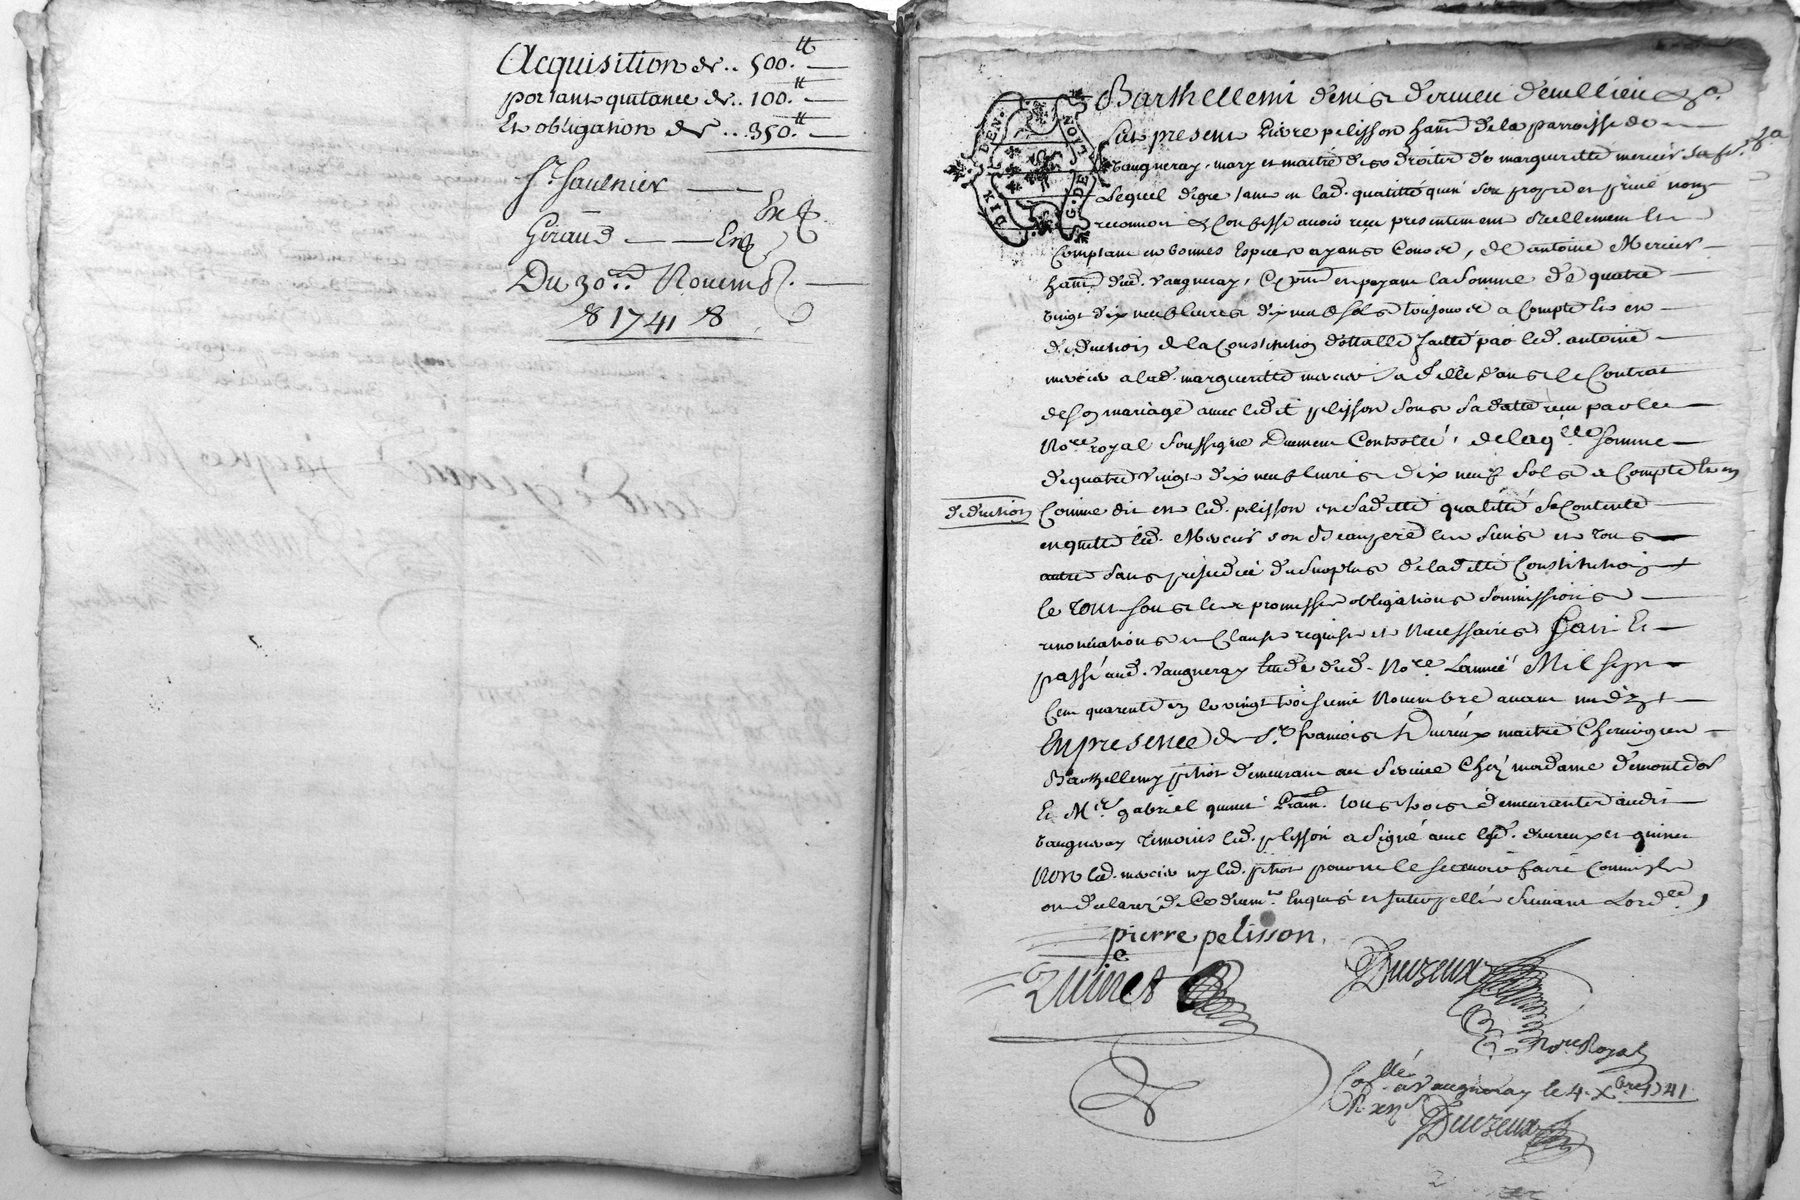 Acquisition de .. 500.tt
portant quitance de .. 100.tt
Et obligation de ... 350.tt
Sr. Saulnier
Giraud
Du 30.e Novemb.
1741
DIX DEN.
G. DE LYON
Barthellemi denis
fut present Pierre pelisson hant. de la parroisse de
Vaugneray, mary et maitre des droits de margueritte mercier sa fe.
Lequel degré tant en lad. qualitté qu'en son propre et privé nom
reconnoit & Confesse avoir reçu presentement réellement Et
Comptant en bonnes Especes ayant Cours, de antoine Mercier
hant. dud. Vaugneray, cy pnt. en payant la Somme de quatre
vingt dix neuf livres dix neuf sols toujours a Compte Et en
deduction de la Constitution dottalle faitte par led. antoine
mercier a lad. marguerite mercier sa fille dans le Contrat
de son mariage avec ledit pelisson sous sa datte reçu par le
No.re royal soussigné Duement Contrôllé, de laq.lle Somme
de quatre vingt dix neuf livres dix neuf sols a Compte Et en
deduction Comme dit est led. pelisson en saditte qualitté se Contente
en quitte led. Mercier son Beaupere les siens et tous
autre sans prejudice du surplus de laditte Constitution
le tout sous les promesses obligations soumissions
renonciations et Clauses requises et Necessaires fait Et
passé aud. Vaugneray Etude dud. No.re L'année Mil sept
Cent quarente un le vingt troisieme Novembre avant midy
En presence de Sr. francois Duvreux maitre Chirurgien
Barthellemy pithot demeurant au service Chez madame demontdor
Et M.re gabriel quinet Prain. tous trois demeurants audit
Vaugneray temoins led. pelisson a signé avec lesd. duvreux et quinet
Non led. mercier ny led. pithot pour ne le sçavoir faire Comme ils
ont declaré de Ce duem.t Enquis et Interpellé suivant L'ord.ce
pierre pelisson
Quinet
No.re Royal
Co.llé a Vaugneray le 4. Xbre 1741